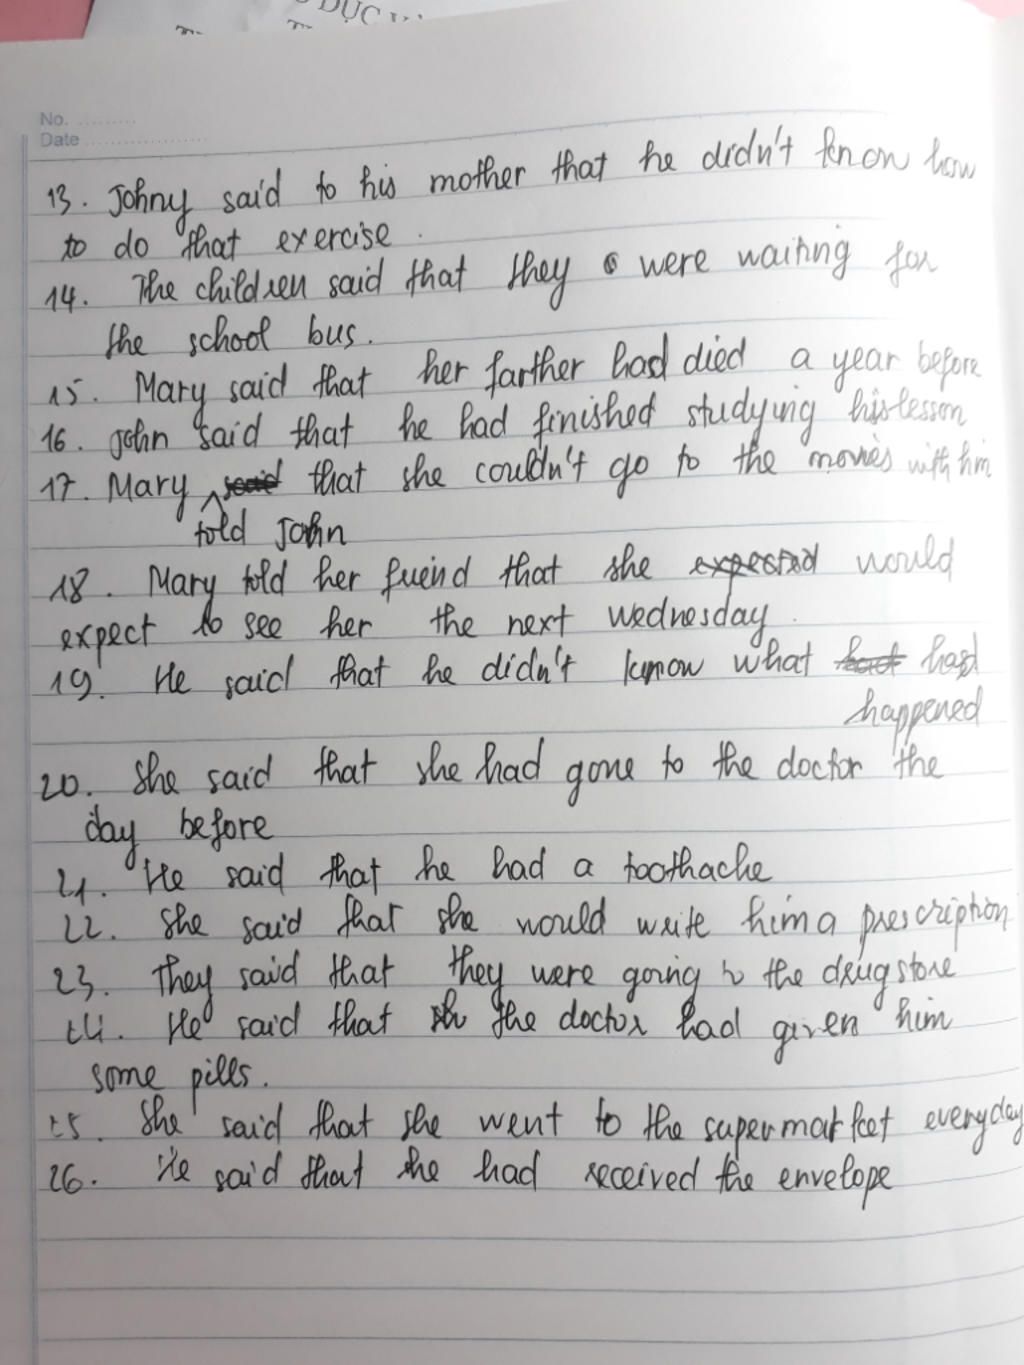 DỤC V
No.
Date
13. Johny said to his mother that he didn't know how
to do that exercise.
14. The children said that they were waiting for
the school bus.
15. Mary said that her farther had died a year before
16. John said that he had finished studying his lesson
17. Mary said that she couldn't go to the movies with him
told John
18. Mary told her fueind that she expected would
expect to see her the next Wednesday.
19. He said that he didn't know what had had
happened
20. She said that she had gone to the doctor the
day before
21. He said that he had a toothache
22. She said that she would write him a prescription
23. They said that they were going to the drugstore
24. He said that the doctor had given him
some pills.
25. She said that she went to the supermarket everyday
26. He said that he had received the envelope